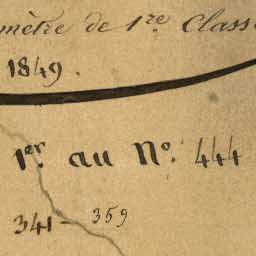 mètre de 1re Class
1849.
1er. au No. 444
341 - 359